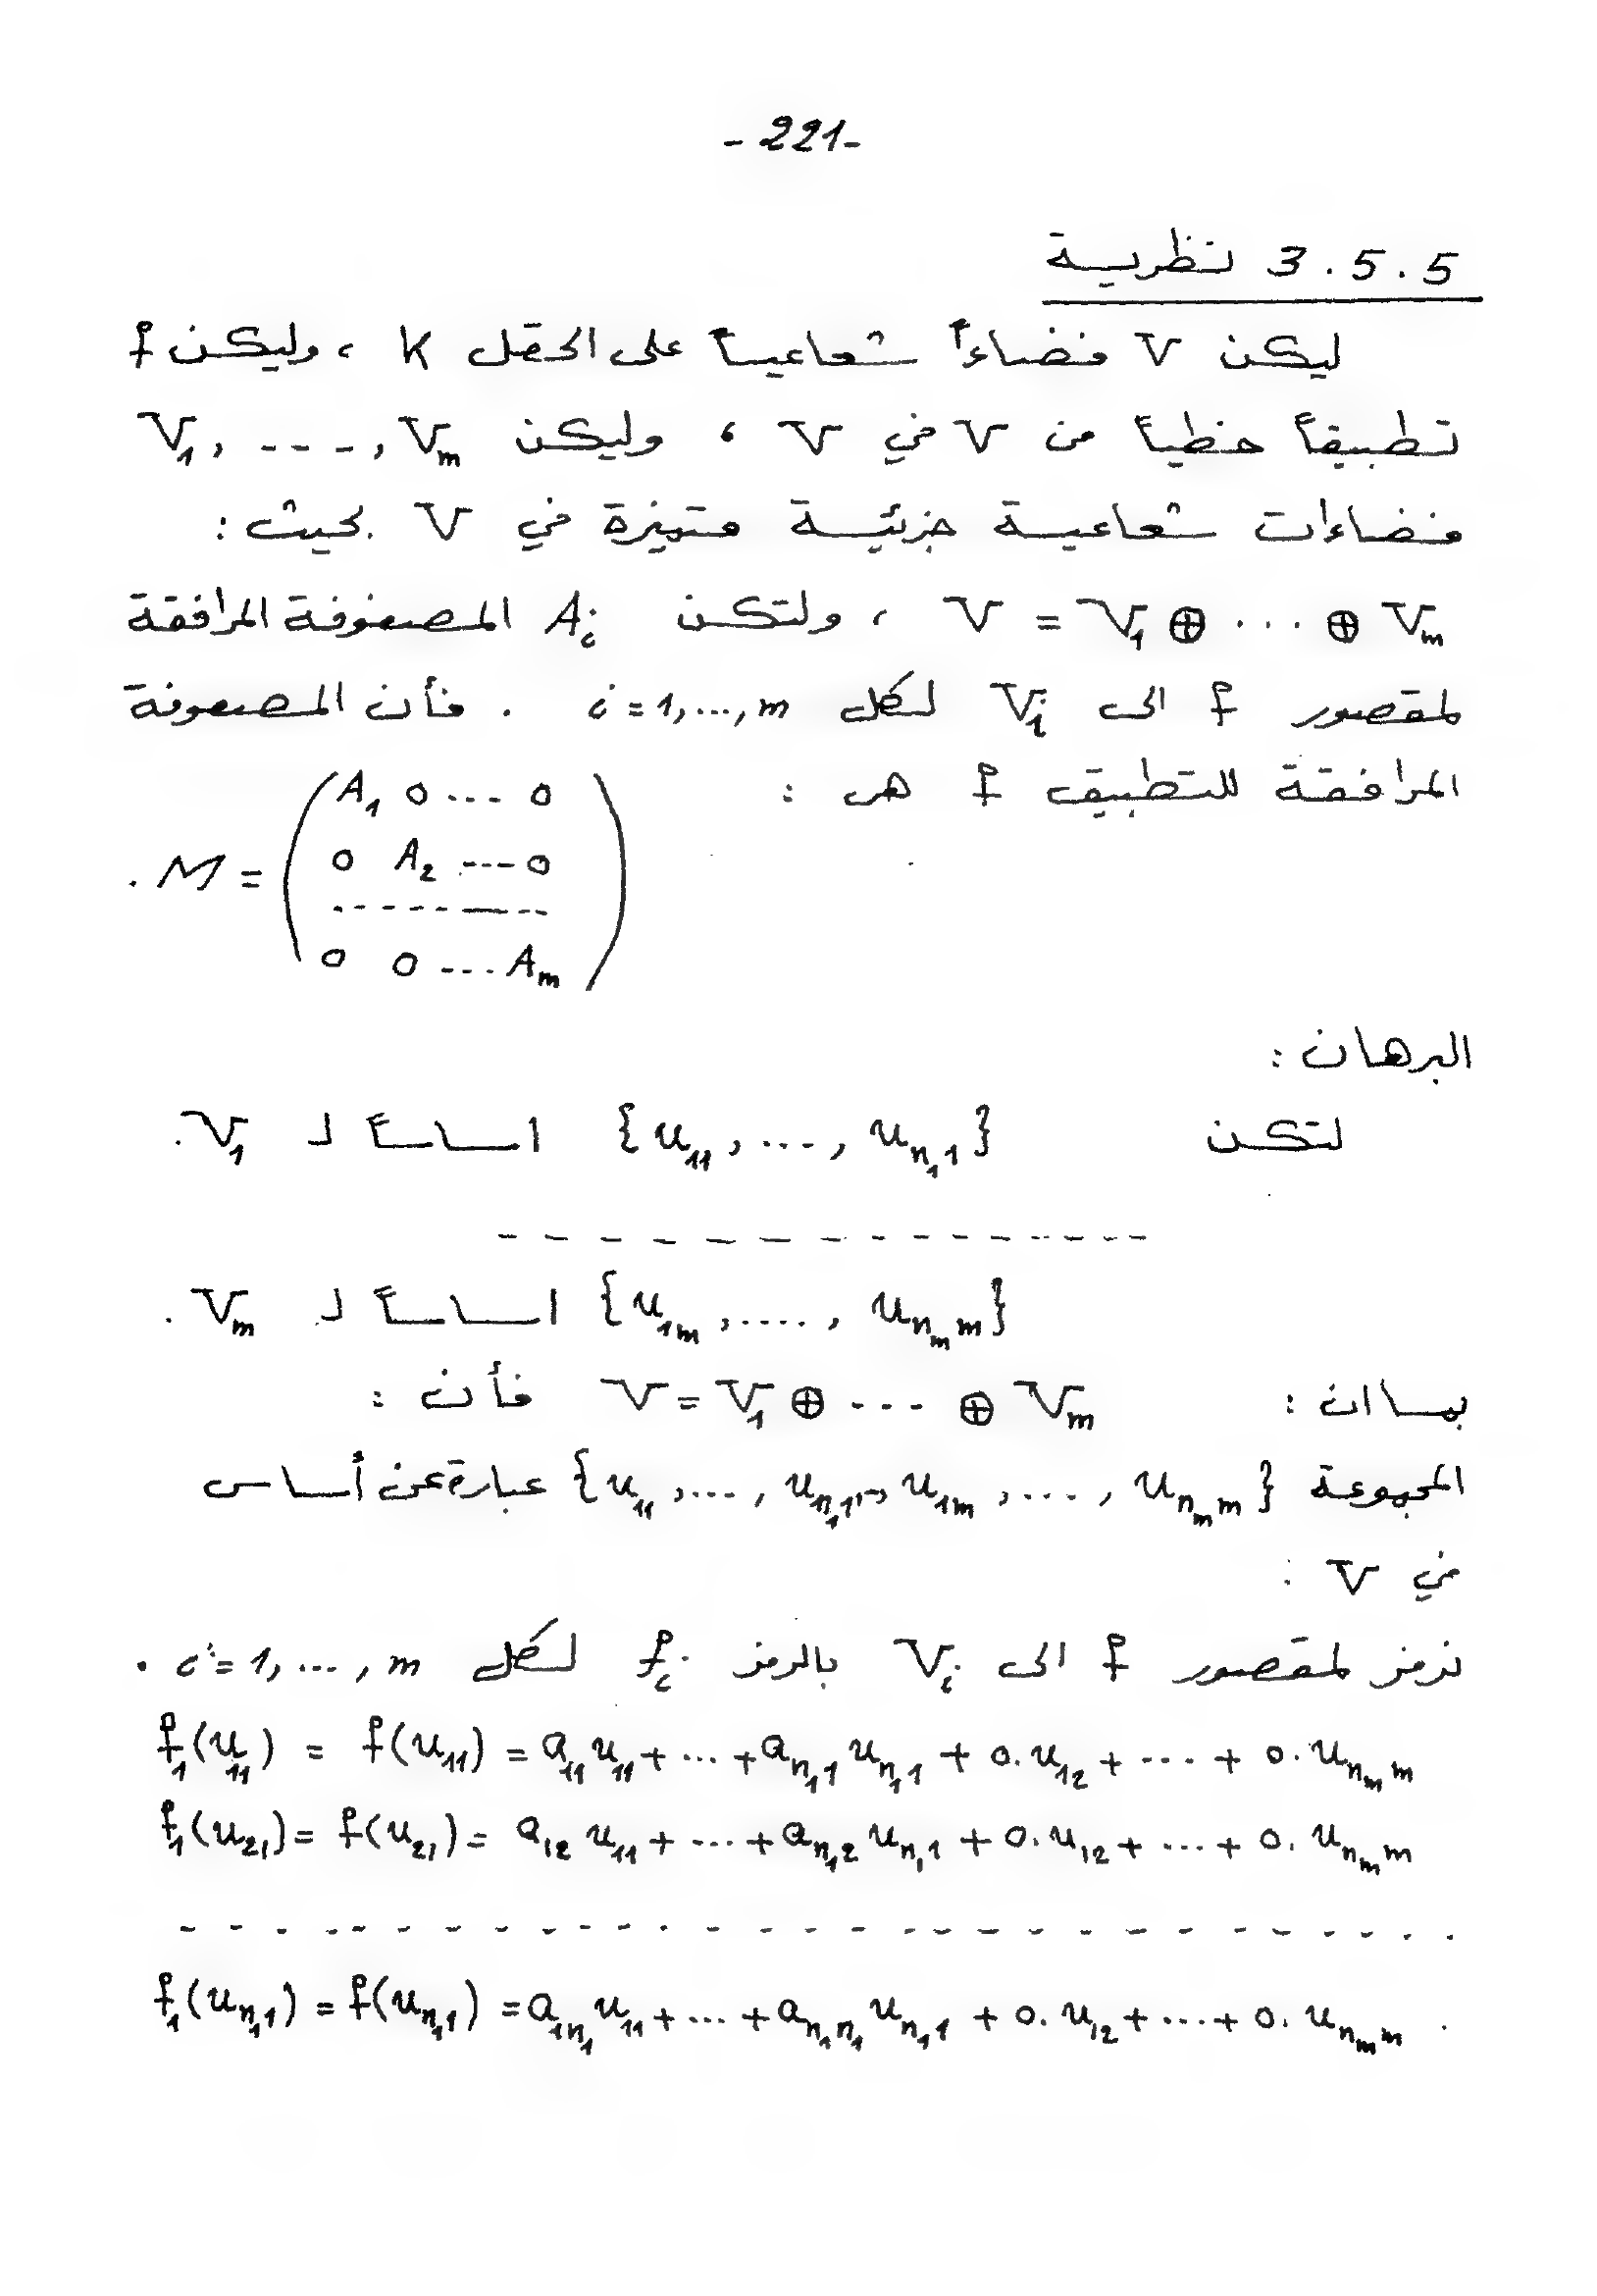 - 221 -
3.5.5 نظرية
ليكن V فضاءاً شعاعياً على الحقل K ، وليكن f
تطبيقاً خطياً من V في V ، وليكن V_1, ---, V_m
فضاءات شعاعية جزئية متميزة في V بحيث :
V = V_1 ⊕ .... ⊕ V_m ، ولتكن A_i المصفوفة المرافقة
لمقصور f الى V_i لكل i = 1, ..., m . فأن المصفوفة
المرافقة للتطبيق f هي :
. M = ( A_1 0 .... 0
0 A_2 ---- 0
- - - - - - - -
0 0 .... A_m )
البرهان :
لتكن {u_{11}, ...., u_{n_1 1}} اساساً لـ V_1 .
- - - - - - - - - - - - - -
{u_{1m}, ....., u_{n_m m}} اساساً لـ V_m .
بما ان : V = V_1 ⊕ --- ⊕ V_m فأن :
المجموعة {u_{11}, ...., u_{n_1 1}, --, u_{1m}, ...., u_{n_m m}} عبارة عن أساس
في V :
نرمز لمقصور f الى V_i بالرمز f_i لكل i = 1, ..., m .
f_1(u_{11}) = f(u_{11}) = a_{11} u_{11} + ... + a_{n_1 1} u_{n_1 1} + 0. u_{12} + .... + 0. u_{n_m m}
f_1(u_{21}) = f(u_{21}) = a_{12} u_{11} + ... + a_{n_1 2} u_{n_1 1} + 0. u_{12} + .... + 0. u_{n_m m}
- - - - - - - - - - - - - - - - - - - - - - - -
f_1(u_{n_1 1}) = f(u_{n_1 1}) = a_{1 n_1} u_{11} + ... + a_{n_1 n_1} u_{n_1 1} + 0. u_{12} + .... + 0. u_{n_m m} .